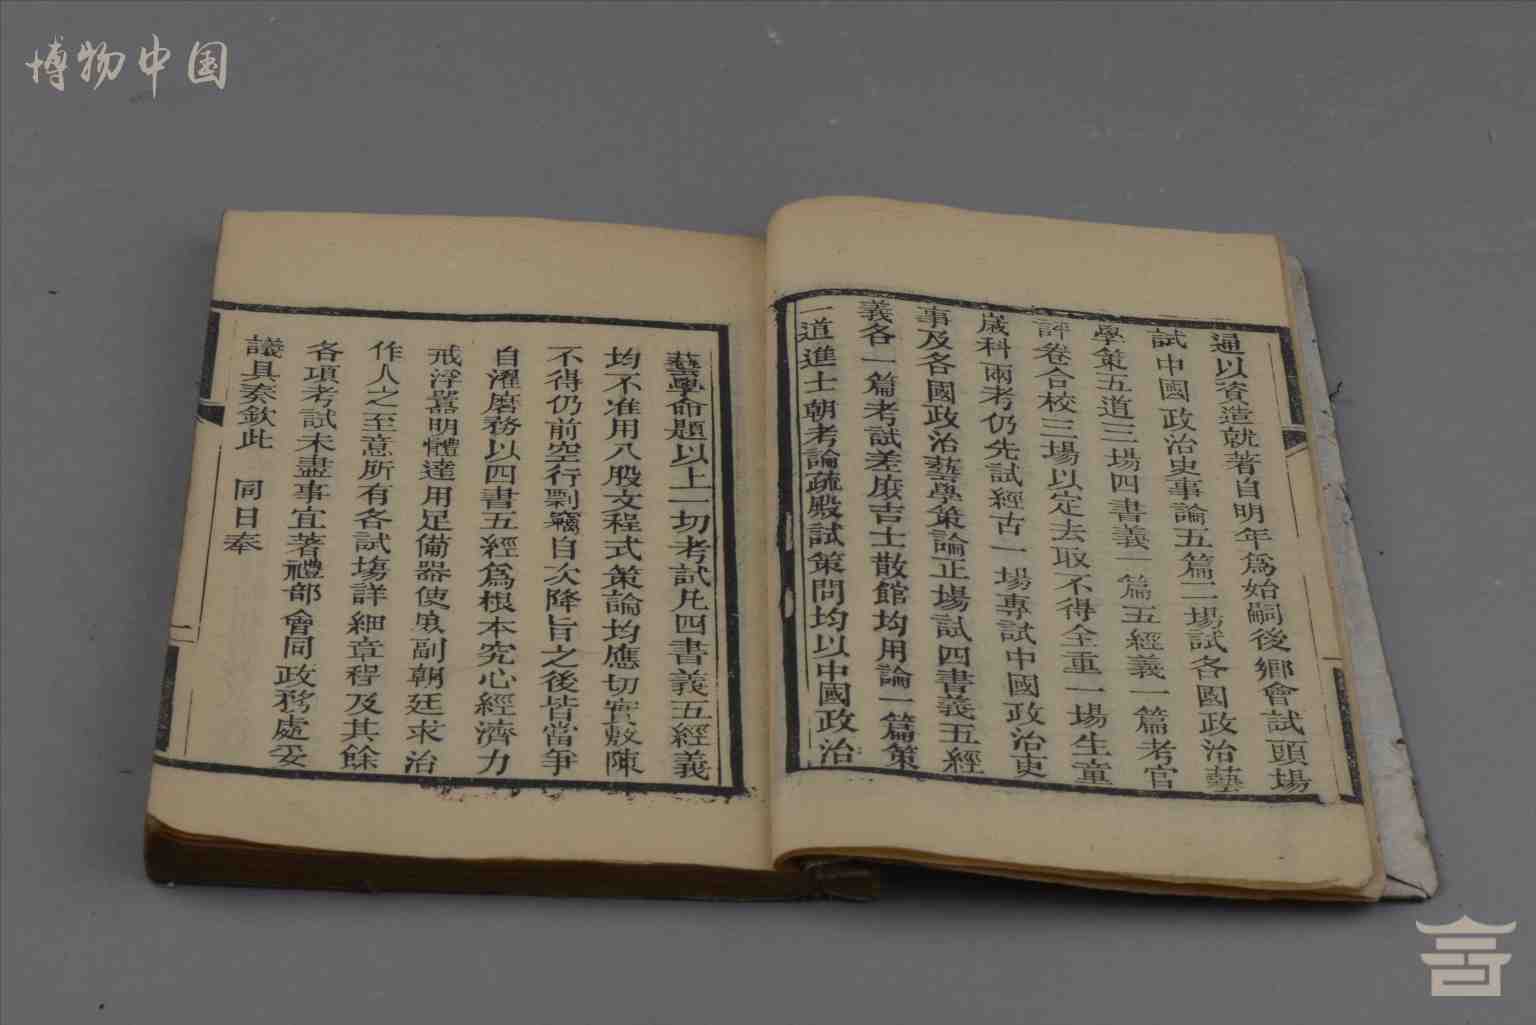 博物中国
通以資造就著自明年爲始嗣後鄉會試頭場
試中國政治史事論五篇二場試各國政治藝
學策五道三場四書義二篇五經義一篇考官
評卷合校三場以定去取不得全重一場生童
歲科兩考仍先試經古一場專試中國政治史
事及各國政治藝學策論正場試四書義五經
義各一篇考試差庶吉士散館均用論一篇策
一道進士朝考論疏殿試策問均以中國政治
藝學命題以上一切考試凡四書義五經義
均不准用八股文程式策論均應切實敷陳
不得仍前空行剽竊自次降旨之後皆當爭
自濯磨務以四書五經爲根本究心經濟力
戒浮囂明體達用足備器使庶副朝廷求治
作人之至意所有各試塲詳細章程及其餘
各項考試未盡事宜著禮部會同政務處妥
議具奏欽此　同日奉
二